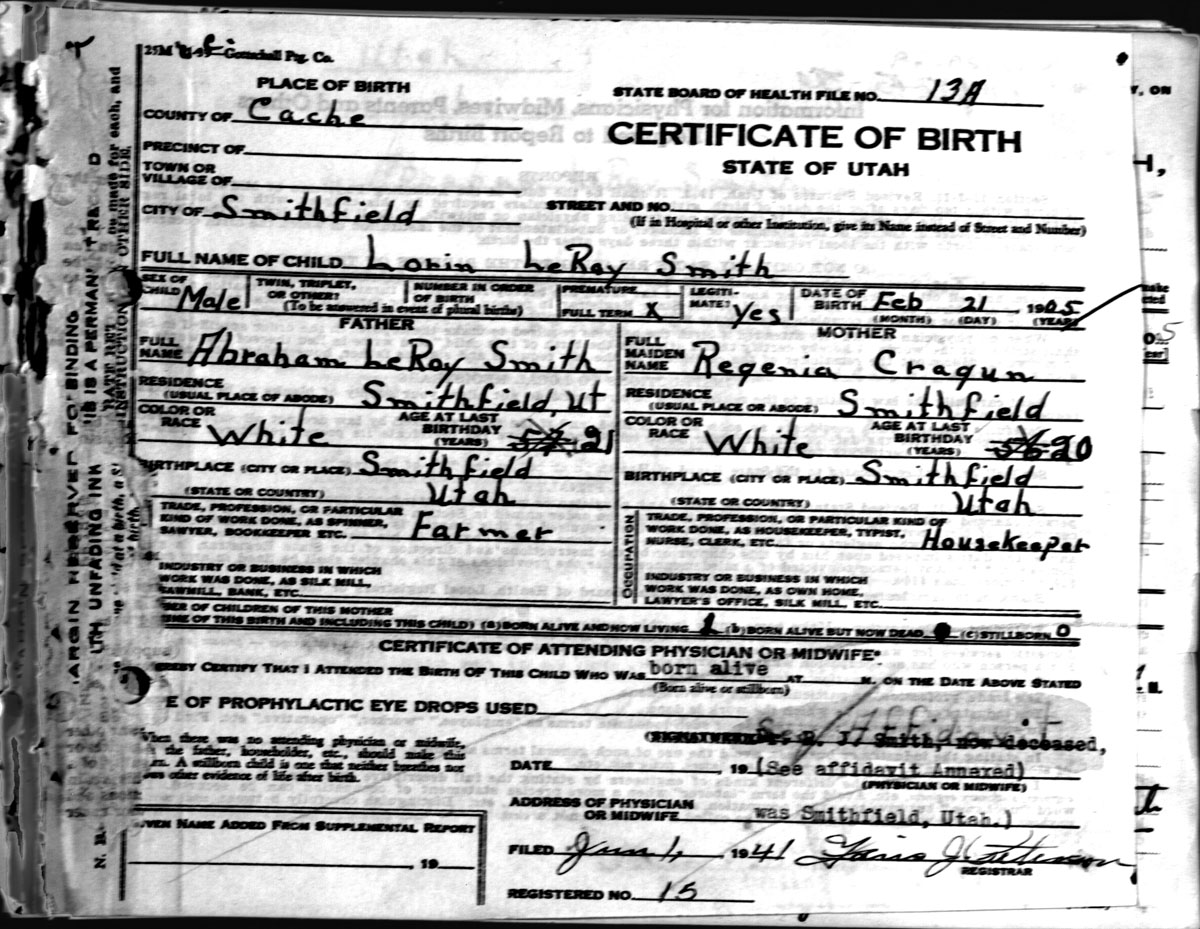 Gottschall Ptg. Co.
PLACE OF BIRTH
STATE BOARD OF HEALTH FILE NO. 13A
COUNTY OF Cache
CERTIFICATE OF BIRTH
STATE OF UTAH
PRECINCT OF
TOWN OR
VILLAGE OF
CITY OF Smithfield
STREET AND NO.
(If in Hospital or other Institution, give its Name instead of Street and Number)
FULL NAME OF CHILD Lorin LeRoy Smith
SEX OF CHILD Male
TWIN, TRIPLET, OR OTHER?
NUMBER IN ORDER OF BIRTH
(To be answered in event of plural births)
PREMATURE
FULL TERM X
LEGITIMATE? Yes
DATE OF BIRTH Feb 21 1905
(MONTH) (DAY) (YEAR)
FATHER
FULL NAME Abraham LeRoy Smith
RESIDENCE
(USUAL PLACE OF ABODE) Smithfield, Ut
COLOR OR RACE White
AGE AT LAST BIRTHDAY (YEARS) 21
BIRTHPLACE (CITY OR PLACE) Smithfield
(STATE OR COUNTRY) Utah
TRADE, PROFESSION, OR PARTICULAR
KIND OF WORK DONE, AS SPINNER,
SAWYER, BOOKKEEPER ETC. Farmer
INDUSTRY OR BUSINESS IN WHICH
WORK WAS DONE, AS SILK MILL,
SAWMILL, BANK, ETC.
MOTHER
FULL MAIDEN NAME Regenia Cragun
RESIDENCE
(USUAL PLACE OR ABODE) Smithfield
COLOR OR RACE White
AGE AT LAST BIRTHDAY (YEARS) 20
BIRTHPLACE (CITY OR PLACE) Smithfield
(STATE OR COUNTRY) Utah
OCCUPATION
TRADE, PROFESSION, OR PARTICULAR KIND OF
WORK DONE, AS HOUSEKEEPER, TYPIST,
NURSE, CLERK, ETC. Housekeeper
INDUSTRY OR BUSINESS IN WHICH
WORK WAS DONE, AS OWN HOME,
LAWYER'S OFFICE, SILK MILL, ETC.
BER OF CHILDREN OF THIS MOTHER
IME OF THIS BIRTH AND INCLUDING THIS CHILD) (a) BORN ALIVE AND NOW LIVING 1 (b) BORN ALIVE BUT NOW DEAD (c) STILLBORN 0
CERTIFICATE OF ATTENDING PHYSICIAN OR MIDWIFE*
EREBY CERTIFY THAT I ATTENDED THE BIRTH OF THIS CHILD WHO WAS born alive AT M. ON THE DATE ABOVE STATED
(Born alive or stillborn)
E OF PROPHYLACTIC EYE DROPS USED
Affidavit
Smith, now deceased,
When there was no attending physician or midwife,
the father, householder, etc., should make this
rn. A stillborn child is one that neither breathes nor
ows other evidence of life after birth.
DATE , 19 (See affidavit Annexed)
(PHYSICIAN OR MIDWIFE)
ADDRESS OF PHYSICIAN
OR MIDWIFE was Smithfield, Utah.)
IVEN NAME ADDED FROM SUPPLEMENTAL REPORT
, 19
FILED 1941
REGISTRAR
REGISTERED NO. 15